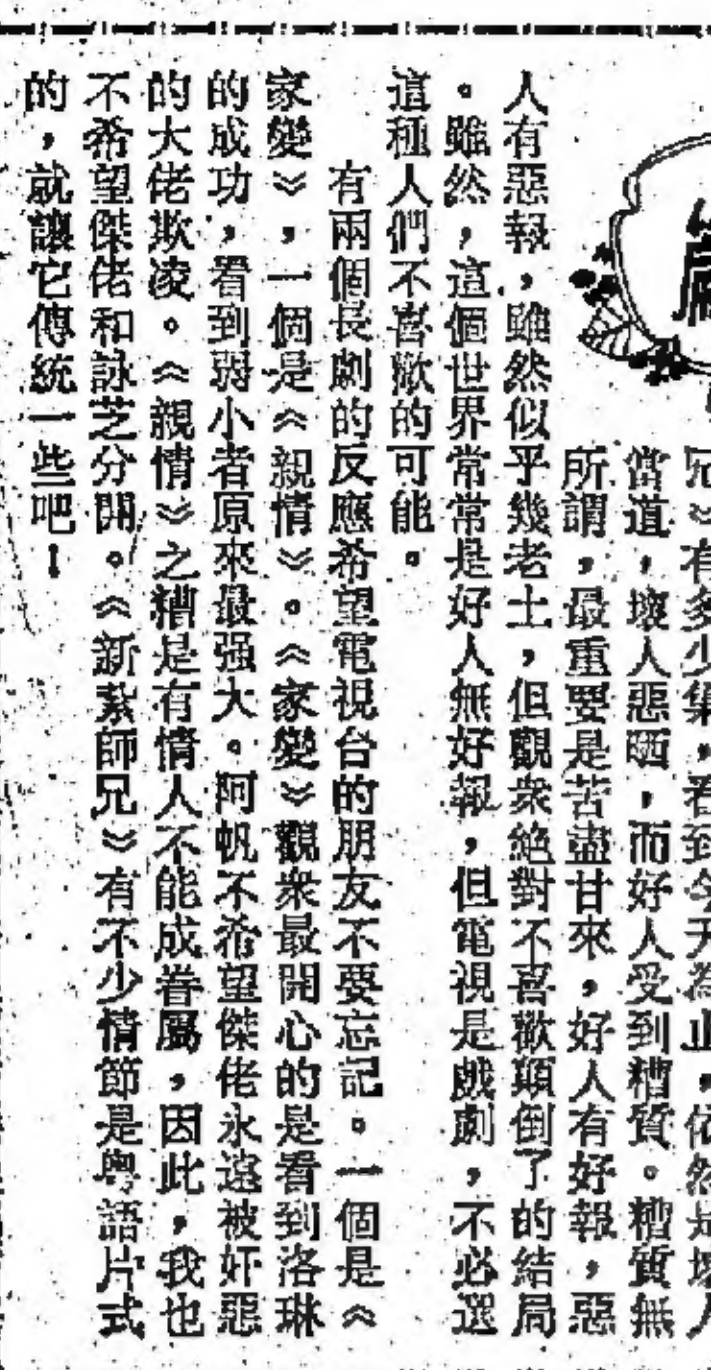 冠》有多少集，看到今天為止，依然是壞人
當道，壞人惡晒，而好人受到糟質。糟質無
所謂，最重要是苦盡甘來，好人有好報，惡
人有惡報，雖然似乎幾老土，但觀衆絕對不喜歡顛倒了的結局
。雖然，這個世界常常是好人無好報，但電視是戲劇，不必選
這種人們不喜歡的可能。
有兩個長劇的反應希望電視台的朋友不要忘記。一個是《
家變》，一個是《親情》。《家變》觀衆最開心的是看到洛琳
的成功，看到弱小者原來最强大。阿帆不希望傑佬永遠被奸惡
的大佬欺凌。《親情》之糟是有情人不能成眷屬，因此，我也
不希望傑佬和詠芝分開。《新紮師兄》有不少情節是粵語片式
的，就讓它傳統一些吧！